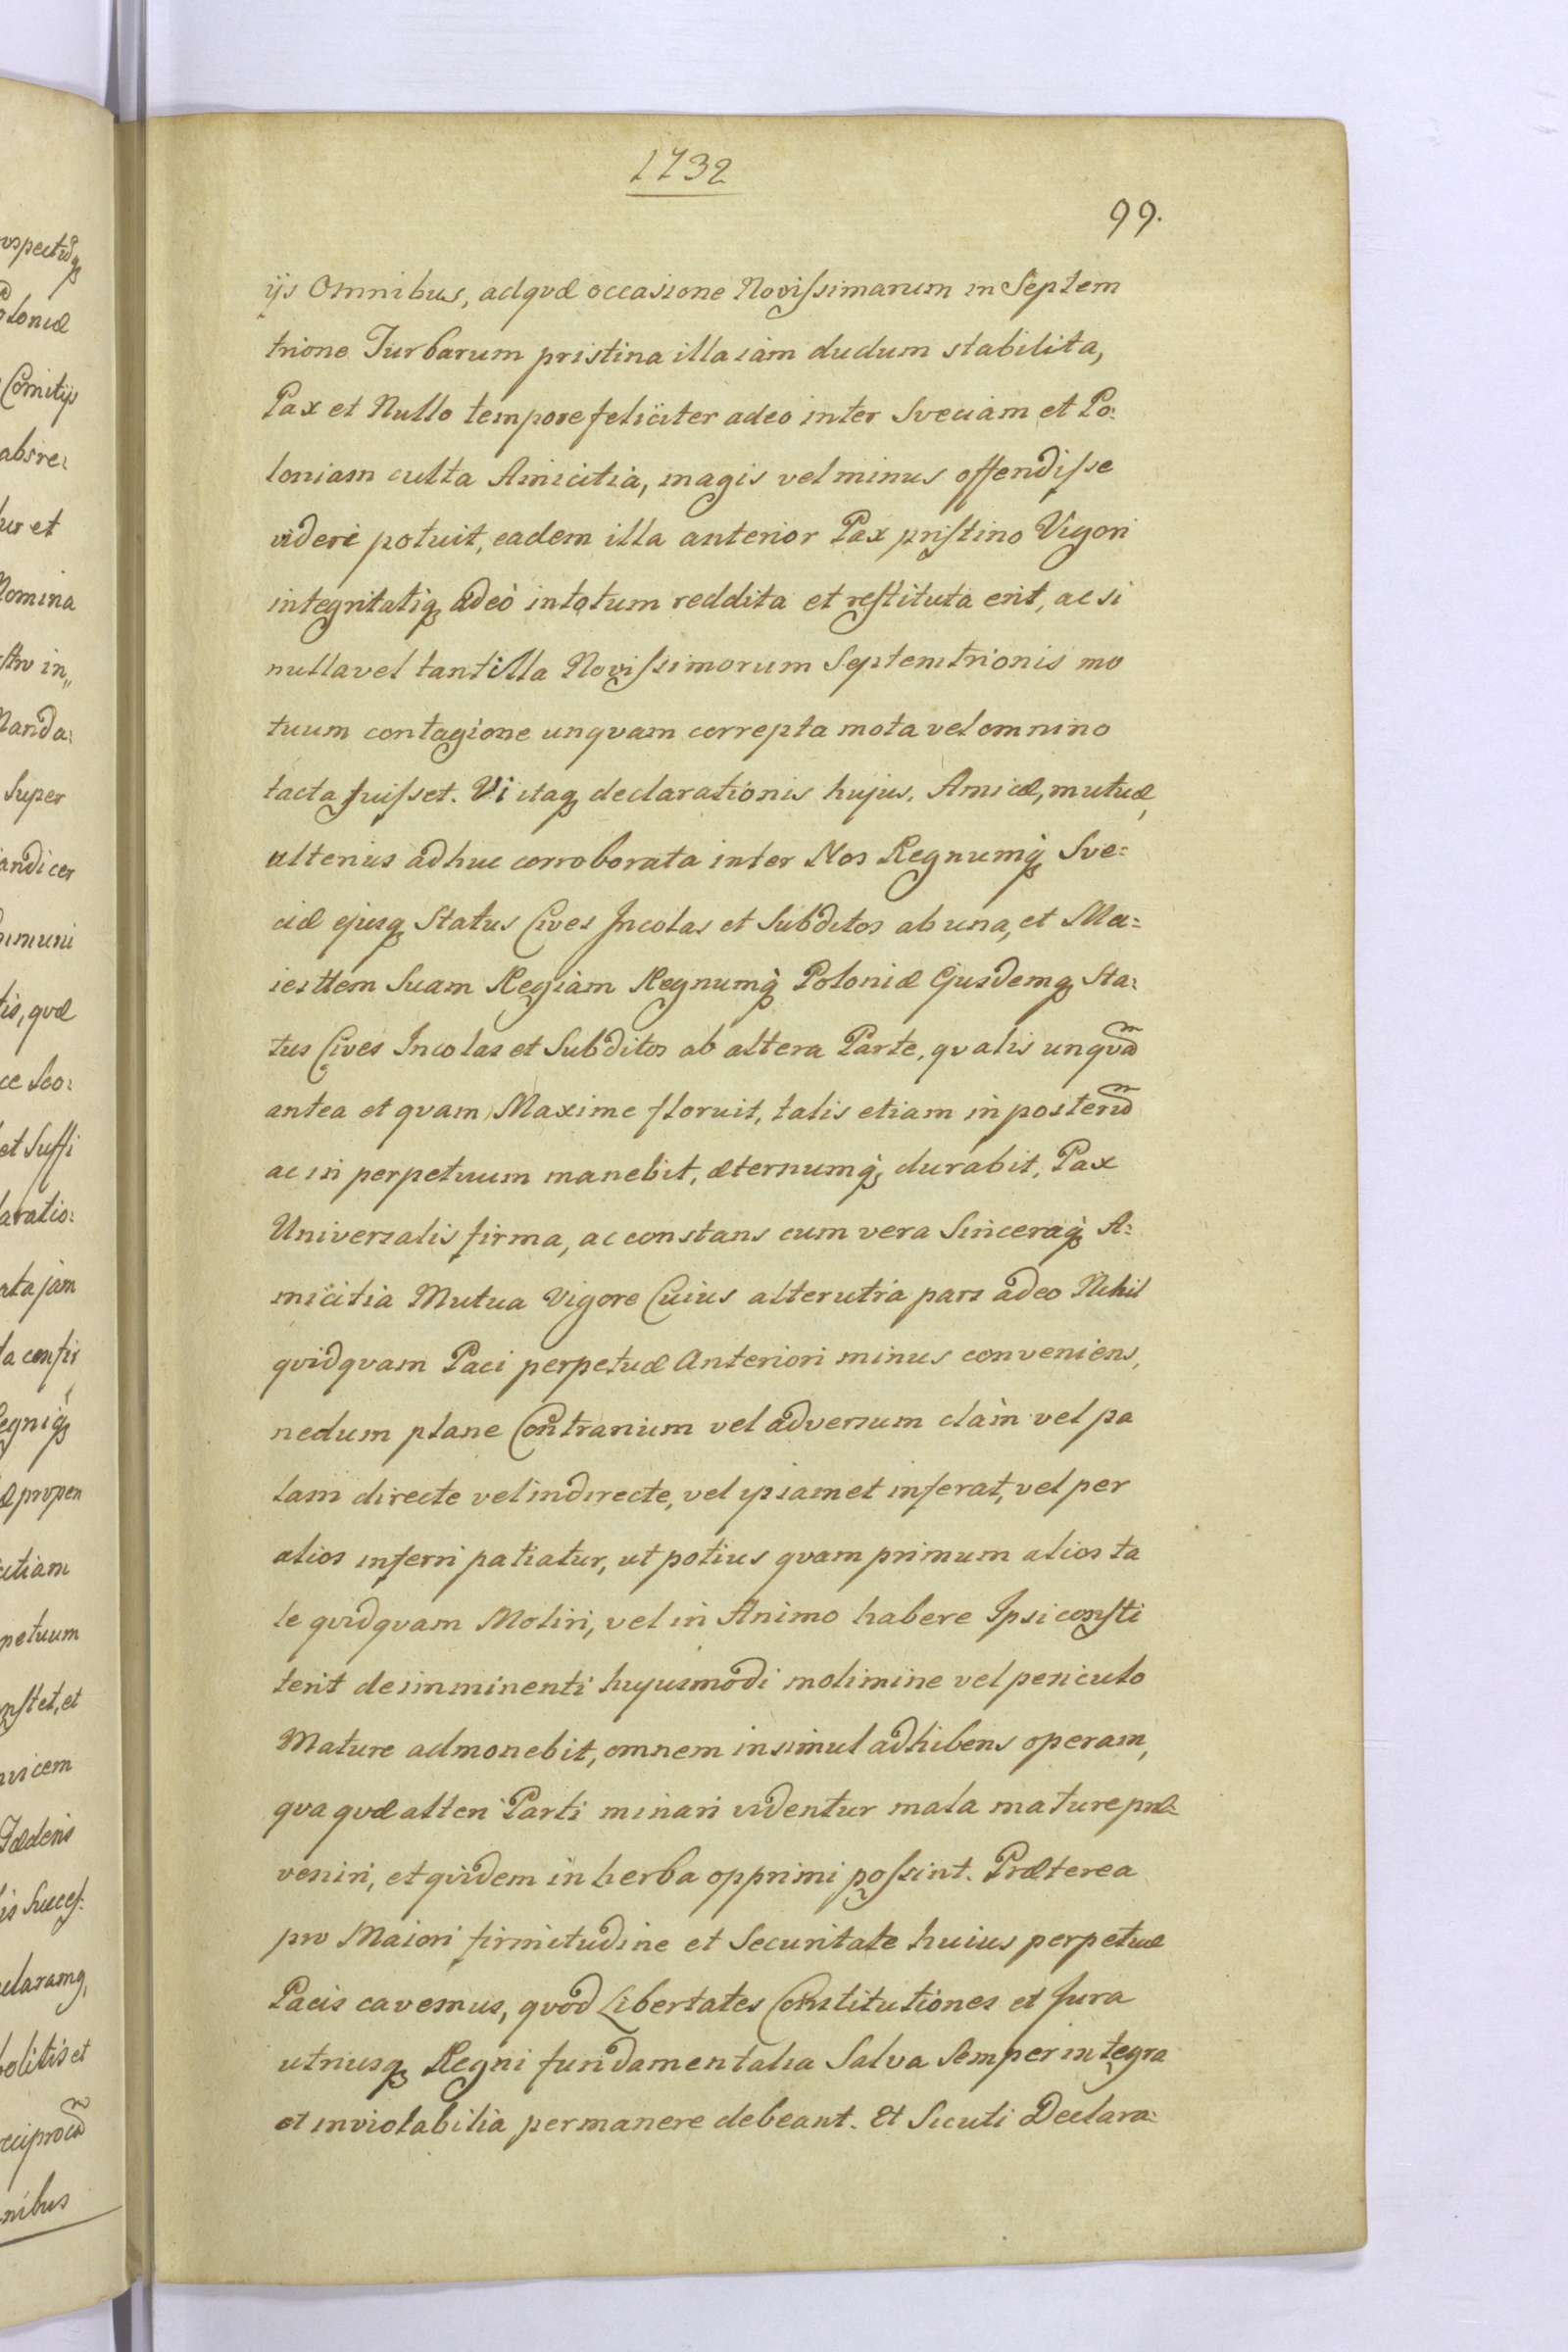 1732
99.
ijs Omnibus, adqvæ occasione Novissimarum in Septem
trione Turbarum pristina illa iàm dudum stabilita,
Pax et Nullo tempore feliciter adeo inter Sveciam et Po:
loniam culta Amicitia, magis vel minus offendisse
videri potuit, eadem illa anterior Pax pristino Vigori
integritatiq; adeò intotum reddita et restituta erit, ac si
nulla vel tantilla Novissimorum Septemtrionis mo
tuum contagione unqvam correpta mota vel omnino
tacta fuisset. Vi itaq; declarationis hujus. Amicæ, mutuæ,
ulterius adhuc corroborata inter Nos Regnumq; Sve=
ciæ ejusq; Status Cives Incolas et Subditos ab una, et Ma=
iesttem Suam Regiam Regnumq; Poloniæ Ejusdemq; Sta:
tus Cives Incolas et Subditos ab altera Parte, qvalis unqvã
antea et qvam Maxime floruit, talis etiam in posterũ
ac in perpetuum manebit, æternumq; durabit, Pax
Universalis firma, ac constans cum vera Sinceraq; A:
micitia Mutua Vigore Cuius alterutra pars adeo Nihil
qvidqvam Paci perpetuæ Anteriori minus conveniens,
nedum plane Contrarium vel adversum clàm vel pa
lam directe vel indirecte, vel ipsamet inferat, vel per
alios inferri patiatur, ut potius qvam primum alios ta
le qvidqvam Moliri, vel in Animo habere Ipsi consti
terit de imminenti hujusmodi molimine vel periculo
Mature admonebit, omnem insimul adhibens operam,
qva qvæ alteri Parti minari videntur mala mature præ=
veniri, et qvidem in herba opprimi possint. Præterea
pro Maiori firmitudine et Securitate huius perpetuæ
Pacis cavemus, qvod Libertates Constitutiones et Jura
utriusq; Regni fundamentalia Salva Semper integra
et inviolabilia permanere debeant. Et Sicuti Declara: